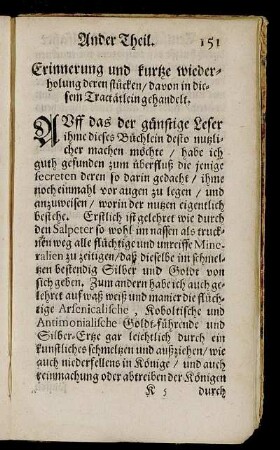 Ander Theil. 151
Erinnerung und kurtze wieder-
holung deren stücken / davon in die-
sem Tractätlein gehandelt.
AUff das der günstige Leser
ihme dieses Büchlein desto nutzli-
cher machen möchte / habe ich
guth gefunden zum überfluß die jenige
secreten deren so darin gedacht / ihme
noch einmahl vor augen zu legen / und
anzuweisen / worin der nutzen eigentlich
bestehe. Erstlich ist gelehret wie durch
den Salpeter so wohl im nassen als truck-
nen weg alle flüchtige und unreiffe Mine-
ralien zu zeitigen / daß dieselbe im schmel-
tzen bestendig Silber und Goldt von
sich geben. Zum andern habe ich auch ge-
lehret auf waß weiß und manier die flüch-
tige Arsenicalische, Koboltische und
Antimonialische Goldt-führende und
Silber-Ertze gar leichtlich durch ein
kunstliches schmeltzen und außziehen / wie
auch niederfellens in Könige / und auch
reinmachung oder abtreiben der Königen
K 5 durch